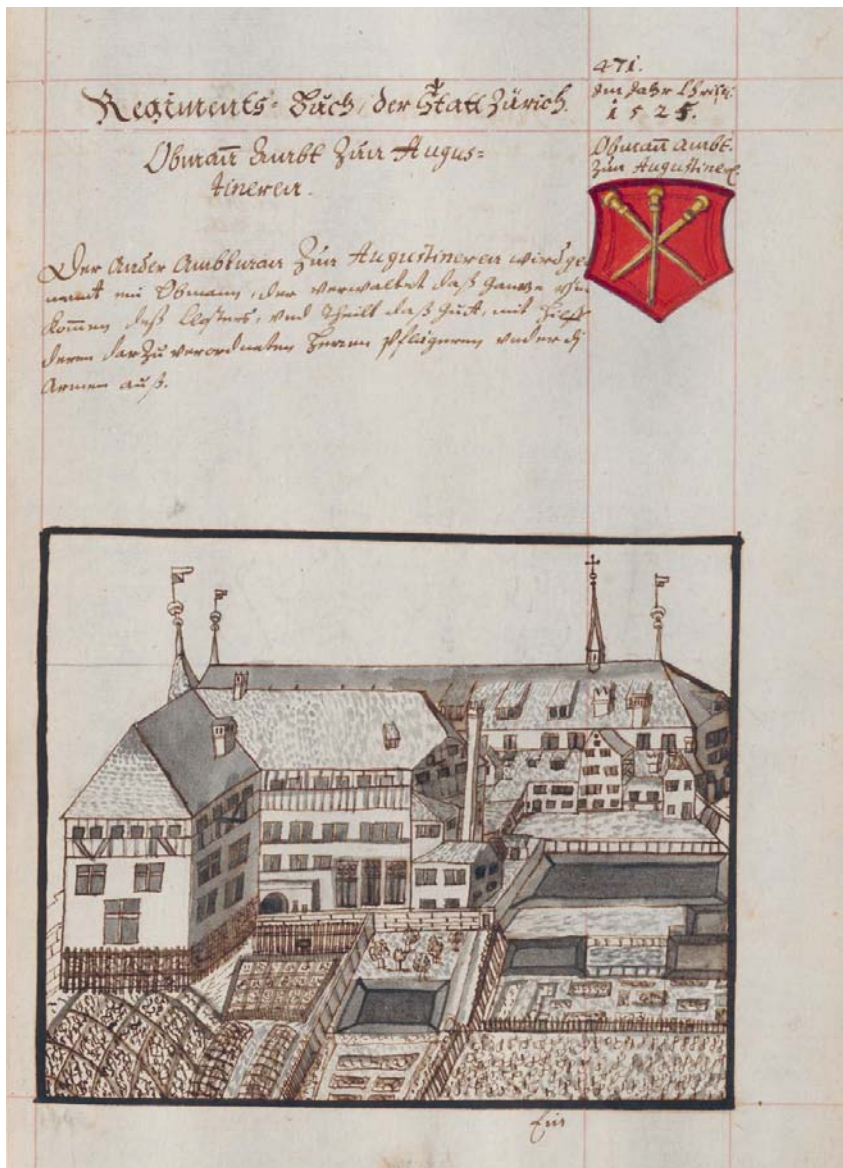 471.
Im Jahr Christi.
1525.
Regiments-Buch, der Statt Zürich.
Obmañ Ambt.
Zun Augustineren.
Obmañ Ambt Zun Augus=
tineren.
Der Ander Ambtman Zun Augustineren wird ge
nent ein Obmann, der verwaltet daß gantze
kom̃en deß Closters, und theilt daß Gutt, mit Hilff
deren darzu verordneten Herren Pflägeren under di
Armen auß.
Ein